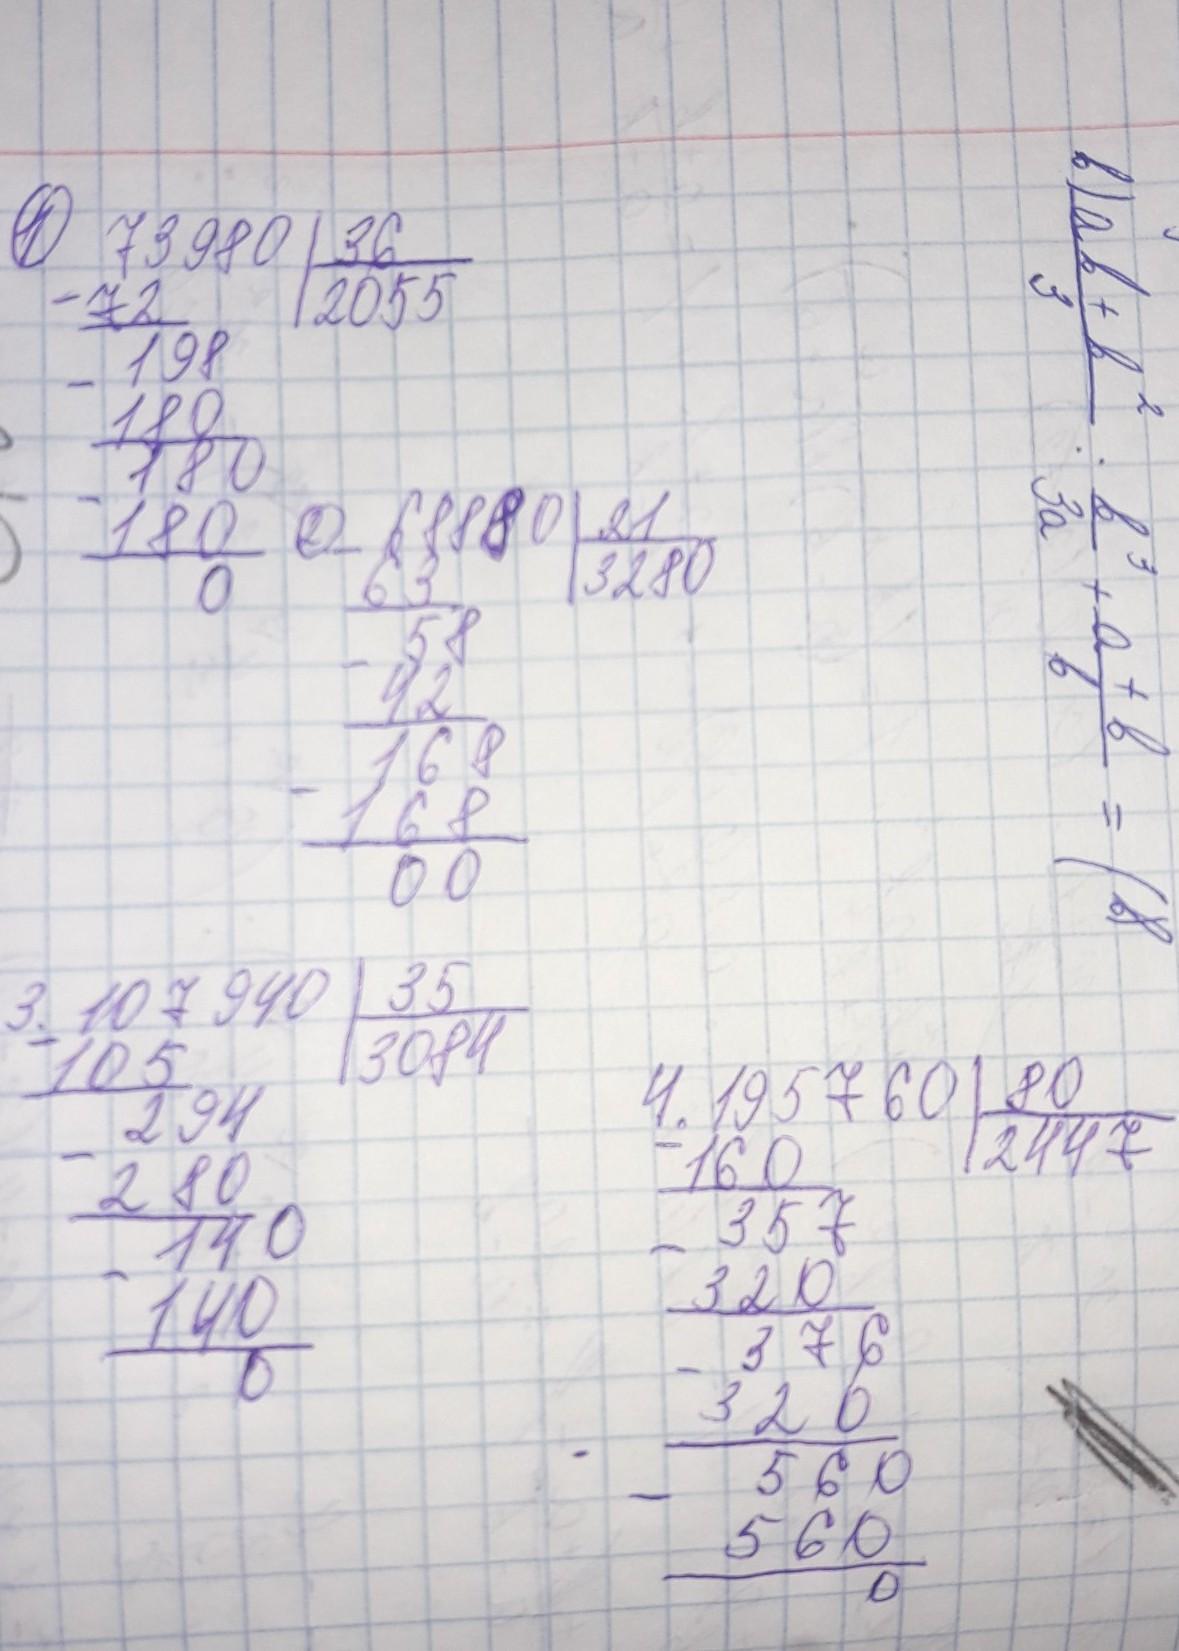 1) 73980 | 36
- 72 | 2055
198
- 180
180
- 180
0
2 - 68880 | 21
63 | 3280
- 58
42
168
- 168
00
3. 107940 | 35
- 105 | 3084
- 294
280
- 140
140
0
4. 195760 | 80
- 160 | 2447
- 357
320
- 376
320
- 560
560
0
в) ab + b² / 3 : b³ / 3a + a + b / b =